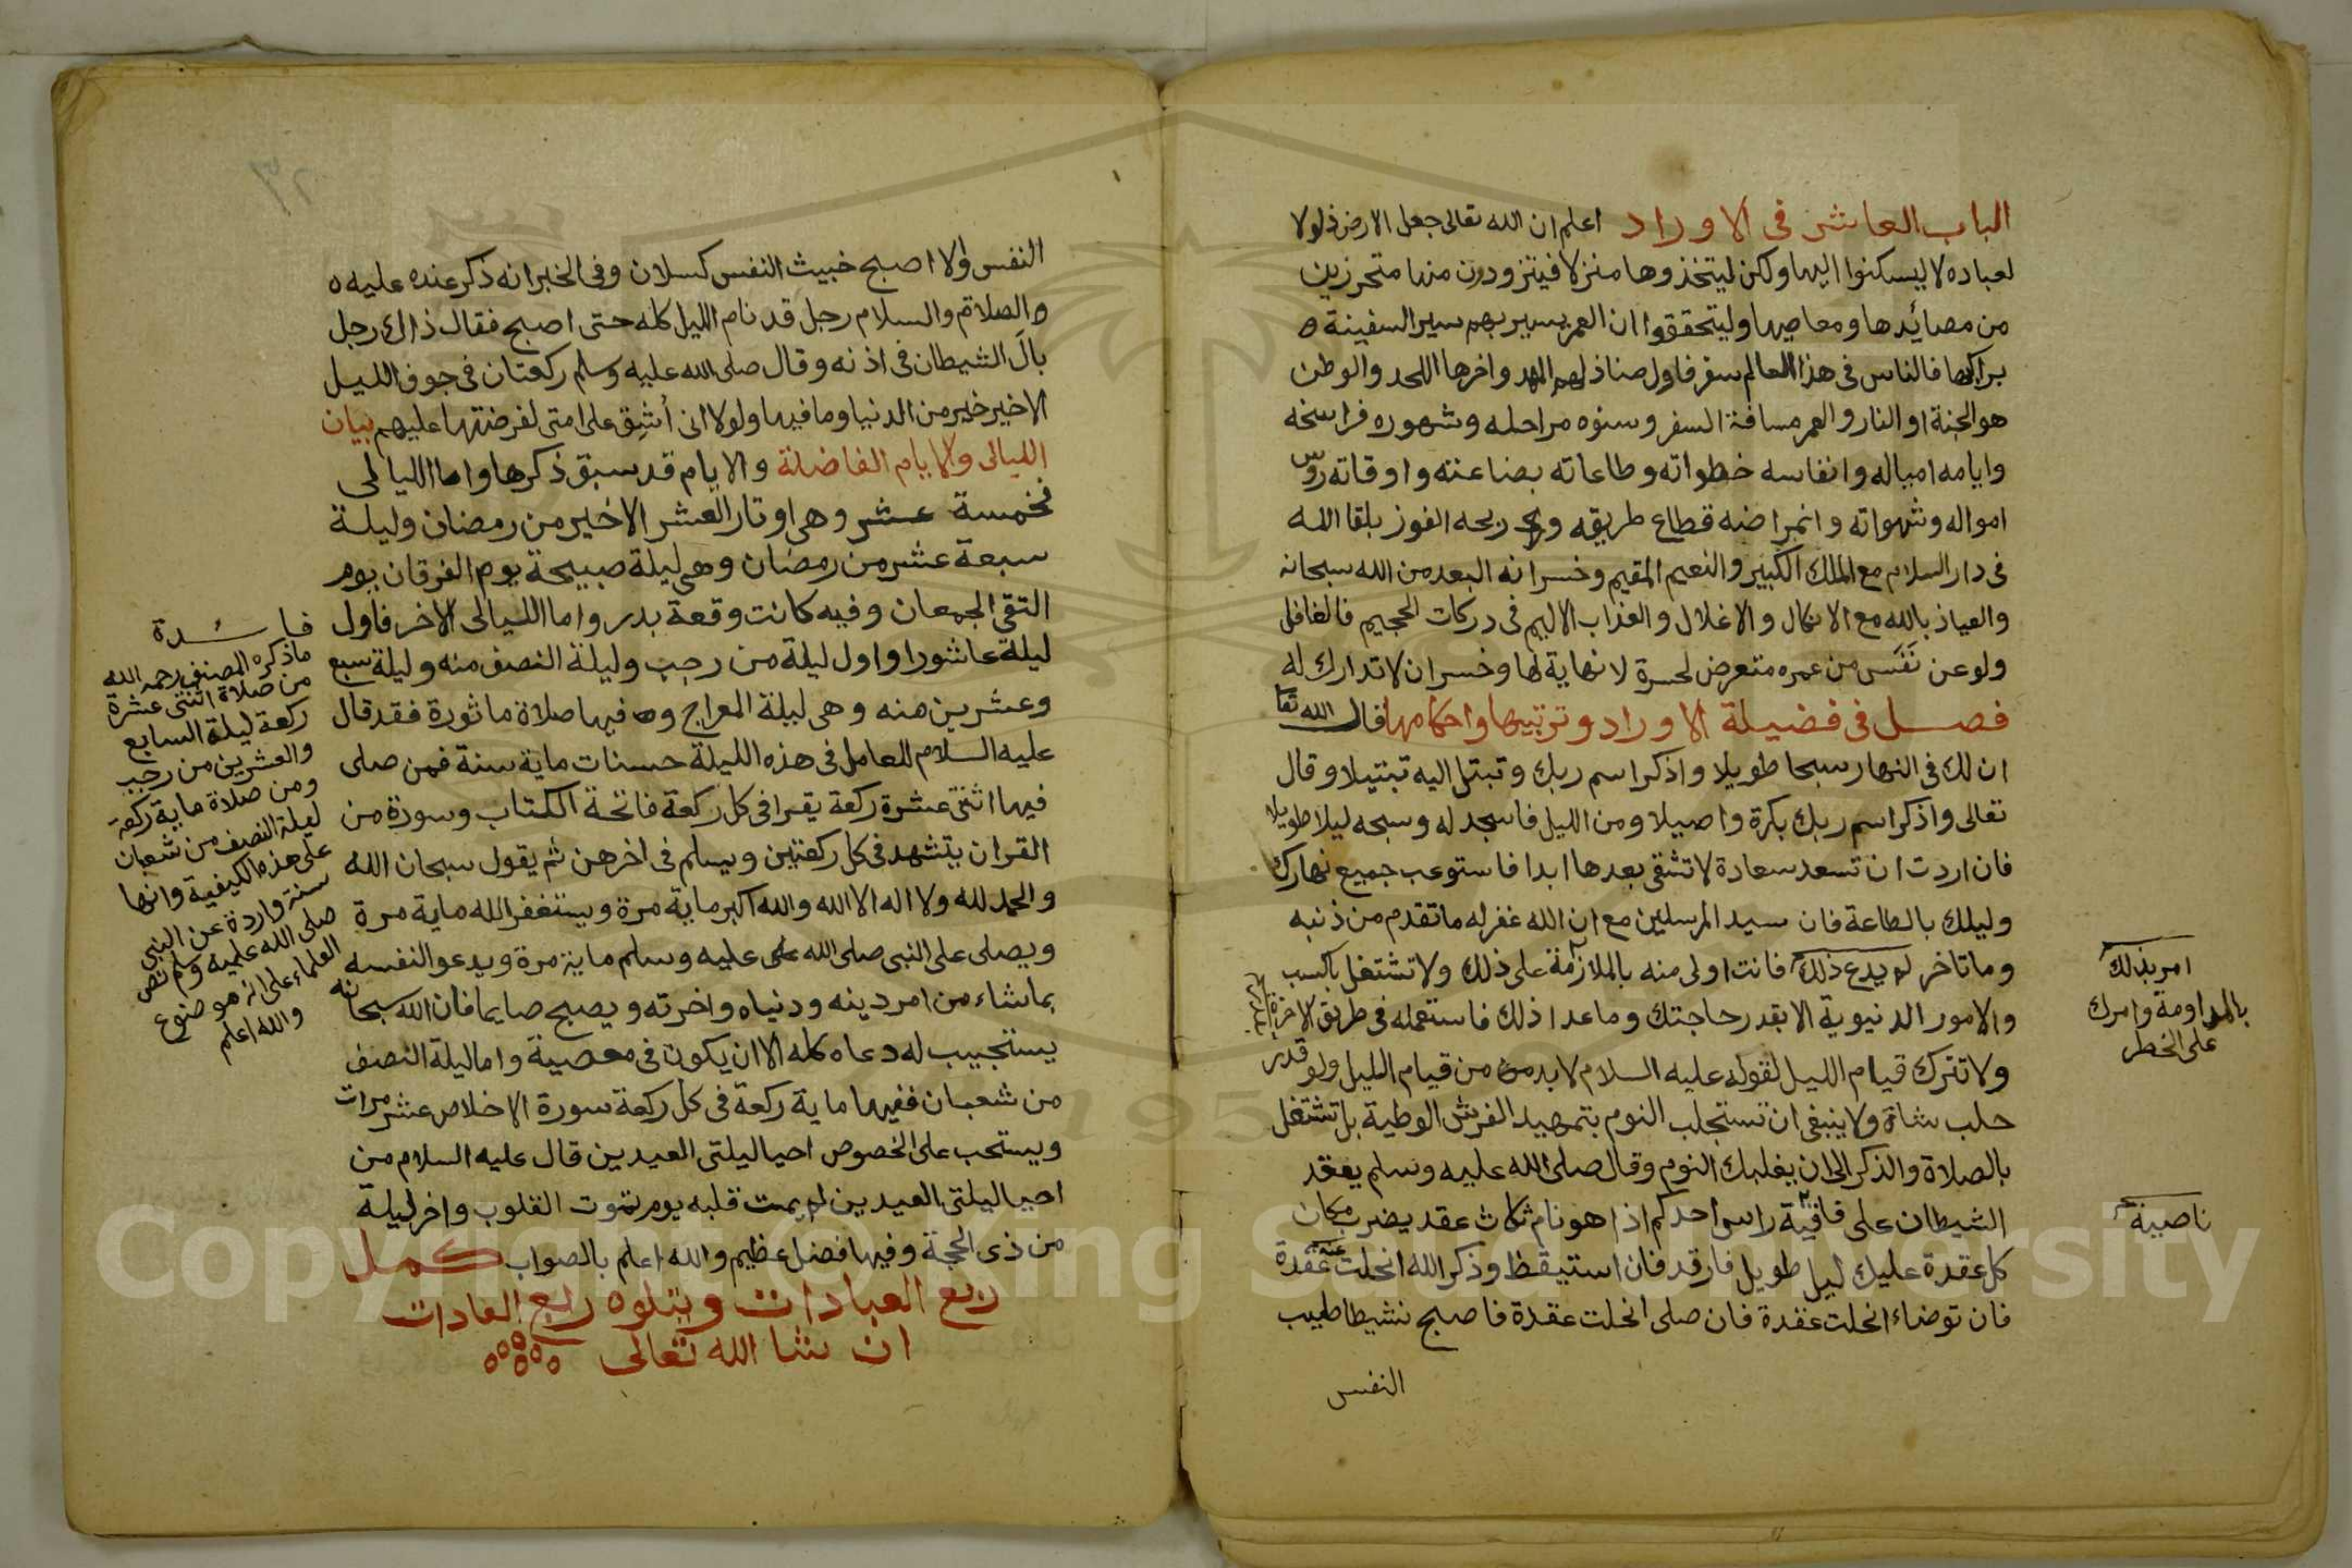 الباب العاشر في الاوراد اعلم ان الله تعالى جعل الارض ذلولا
لعباده لا ليسكنوا اليها ولكن ليتخذوها منزلا فيتزودون منها متحرزين
من مصائدها ومعاصيها وليتحققوا ان العمر يسير بهم سير السفينة
براكبها فالناس في هذا العالم سفر فاول منازلهم المهد واخرها اللحد والوطن
هو الجنة او النار والعمر مسافة السفر وسنوه مراحله وشهوره فراسخه
وايامه امياله وانفاسه خطواته وطاعاته بضاعته واوقاته روس
امواله وشهواته واغراضه قطاع طريقه وربحه الفوز بلقا الله
في دار السلام مع الملك الكبير والنعيم المقيم وخسرانه البعد من الله سبحانه
والعياذ بالله مع الانكال والاغلال والعذاب الاليم في دركات الجحيم فالغافل
ولو عن نفس من عمره متعرض لحسرة لا نهاية لها وخسران لا تدارك له
فصل في فضيلة الاوراد وترتيبها واحكامها قال الله تعا
ان لك في النهار سبحا طويلا واذكر اسم ربك وتبتل اليه تبتيلا وقال
تعالى واذكر اسم ربك بكرة واصيلا ومن الليل فاسجد له وسبحه ليلا طويلا
فان اردت ان تسعد سعادة لا تشقى بعدها ابدا فاستوعب جميع نهارك
وليلك بالطاعة فان سيد المرسلين مع ان الله غفر له ما تقدم من ذنبه
وما تاخر لم يدع ذلك فانت اولى منه بالملازمة على ذلك ولا تشتغل بالكسب
والامور الدنيوية الا بقدر حاجتك وما عدا ذلك فاستعمله في طريق الاخرة
ولا تترك قيام الليل لقوله عليه السلام لا بد من قيام الليل ولو قدر
حلب شاة ولا ينبغي ان تستجلب النوم بتمهيد الفرش الوطية بل تشتغل
بالصلاة والذكر الى ان يغلبك النوم وقال صلى الله عليه وسلم يعقد
الشيطان على قافية راس احدكم اذا هو نام ثلاث عقد يضرب مكان
كل عقدة عليك ليل طويل فارقد فان استيقظ وذكر الله انحلت عقدة
فان توضاء انحلت عقدة فان صلى انحلت عقدة فاصبح نشيطا طيب
النفس
امر بذلك
بالمداومة وامرك
على الخطر
ناصية
النفس والا اصبح خبيث النفس كسلان وفي الخبر انه ذكر عنده عليه
الصلاة والسلام رجل قد نام الليل كله حتى اصبح فقال ذاك رجل
بال الشيطان في اذنه وقال صلى الله عليه وسلم ركعتان في جوف الليل
الاخير خير من الدنيا وما فيها ولولا اني أشق على امتي لفرضتها عليهم بيان
الليالي والايام الفاضلة والايام قد سبق ذكرها واما الليالي
فخمسة عشر وهي اوتار العشر الاخير من رمضان وليلة
سبعة عشر من رمضان وهي ليلة صبيحة يوم الفرقان يوم
التقى الجمعان وفيه كانت وقعة بدر واما الليالي الاخر فاول
ليلة عاشورا واول ليلة من رجب وليلة النصف منه وليلة سبع
وعشرين منه وهي ليلة المعراج وفيها صلاة ماثورة فقد قال
عليه السلام للعامل في هذه الليلة حسنات ماية سنة فمن صلى
فيها اثنتي عشرة ركعة يقرا في كل ركعة فاتحة الكتاب وسورة من
القران يتشهد في كل ركعتين ويسلم في اخرهن ثم يقول سبحان الله
والحمد لله ولا اله الا الله والله اكبر ماية مرة ويستغفر الله ماية مرة
ويصلي على النبي صلى الله عليه وسلم ماية مرة ويدعو النفسه
بما شاء من امر دينه ودنياه واخرته ويصبح صايما فان الله سبحانه
يستجيب له دعاه كله الا ان يكون في معصية واما ليلة النصف
من شعبان ففيها ماية ركعة في كل ركعة سورة الاخلاص عشر مرات
ويستحب على الخصوص احيا ليلتي العيدين قال عليه السلام من
احيا ليلتي العيدين لم يمت قلبه يوم تموت القلوب واخر ليلة
من ذي الحجة وفيها فضل عظيم والله اعلم بالصواب كمل
ربع العبادات ويتلوه ربع العادات
ان شا الله تعالى
فائدة
ما ذكره المصنف رحمه الله
من صلاة اثنتي عشرة
ركعة ليلة السابع
والعشرين من رجب
ومن صلاة ماية ركعة
ليلة النصف من شعبان
على هذه الكيفية وانها
سنة واردة عن النبي
صلى الله عليه وسلم نص
العلماء على انه موضوع
والله اعلم
Copyright © King Saud University